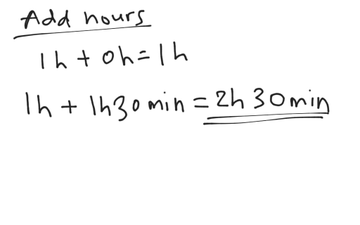 Add hours
1h + 0h = 1h
1h + 1h30min = 2h 30min